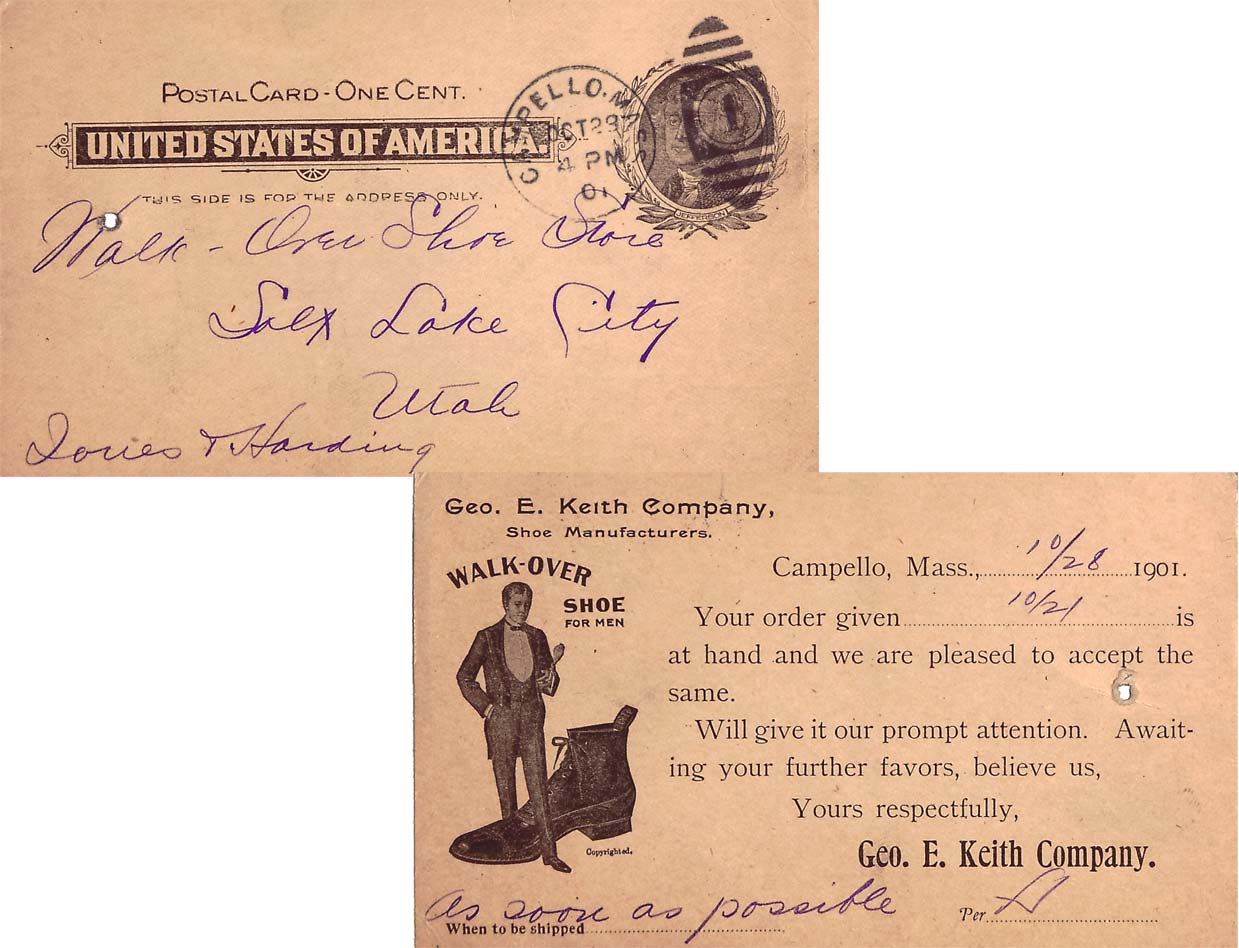 POSTAL CARD - ONE CENT.
UNITED STATES OF AMERICA.
THIS SIDE IS FOR THE ADDRESS ONLY.
CAMPELLO. MASS
OCT 28
4 PM
01
1
JEFFERSON
Walk-Over Shoe Store
Salt Lake City
Utah
Jones & Harding
Geo. E. Keith Company,
Shoe Manufacturers.
WALK-OVER
SHOE
FOR MEN
Copyrighted.
Campello, Mass., 10/28 1901.
Your order given 10/21 is
at hand and we are pleased to accept the
same.
Will give it our prompt attention. Await-
ing your further favors, believe us,
Yours respectfully,
Geo. E. Keith Company.
As soon as possible
When to be shipped
Per